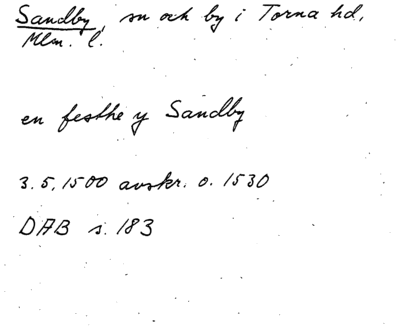 Sandby, sn och by i Torna hd,
Mlm. l.
en festhe y Sandby
3.5.1500 avskr. o. 1530
DAB s. 183